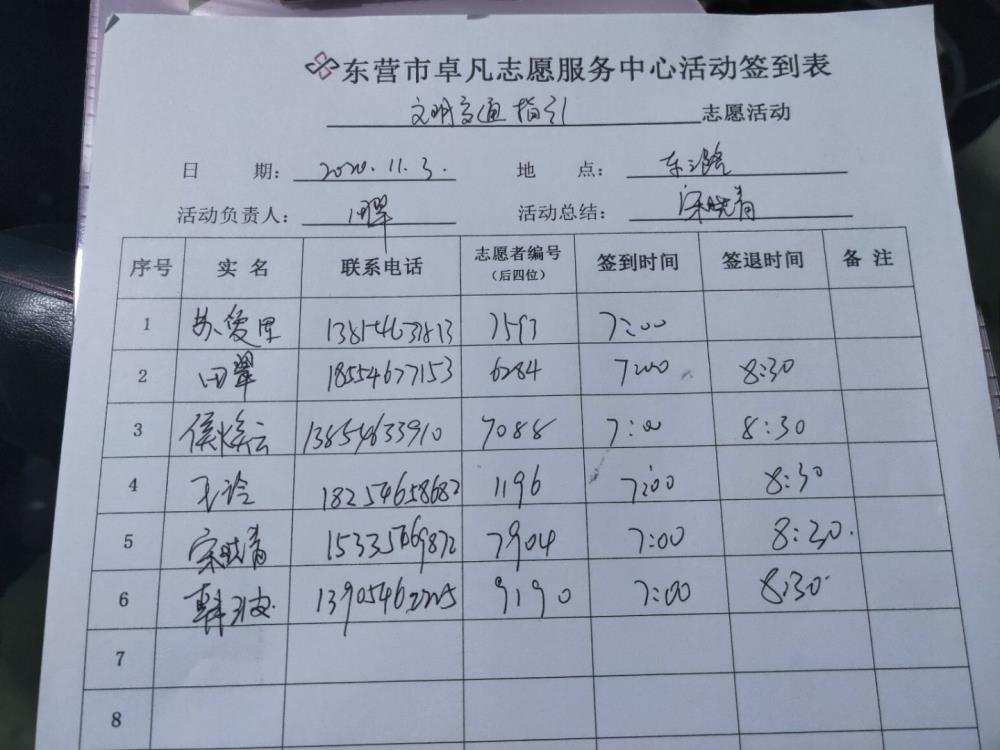 东营市卓凡志愿服务中心活动签到表
文明交通指引 志愿活动
日 期: 2020.11.3. 地 点: 东三路
活动负责人: 田翠 活动总结: 宋晓青
序号 实名 联系电话 志愿者编号(后四位) 签到时间 签退时间 备注
1 苏爱里 13854631813 7597 7:00
2 田翠 18554677153 6284 7:00 8:30
3 侯焕云 13854633910 7088 7:00 8:30
4 王玲 18254658682 1196 7:00 8:30
5 宋晓青 7904 7:00 8:30.
6 韩 9190 7:00 8:30
7
8